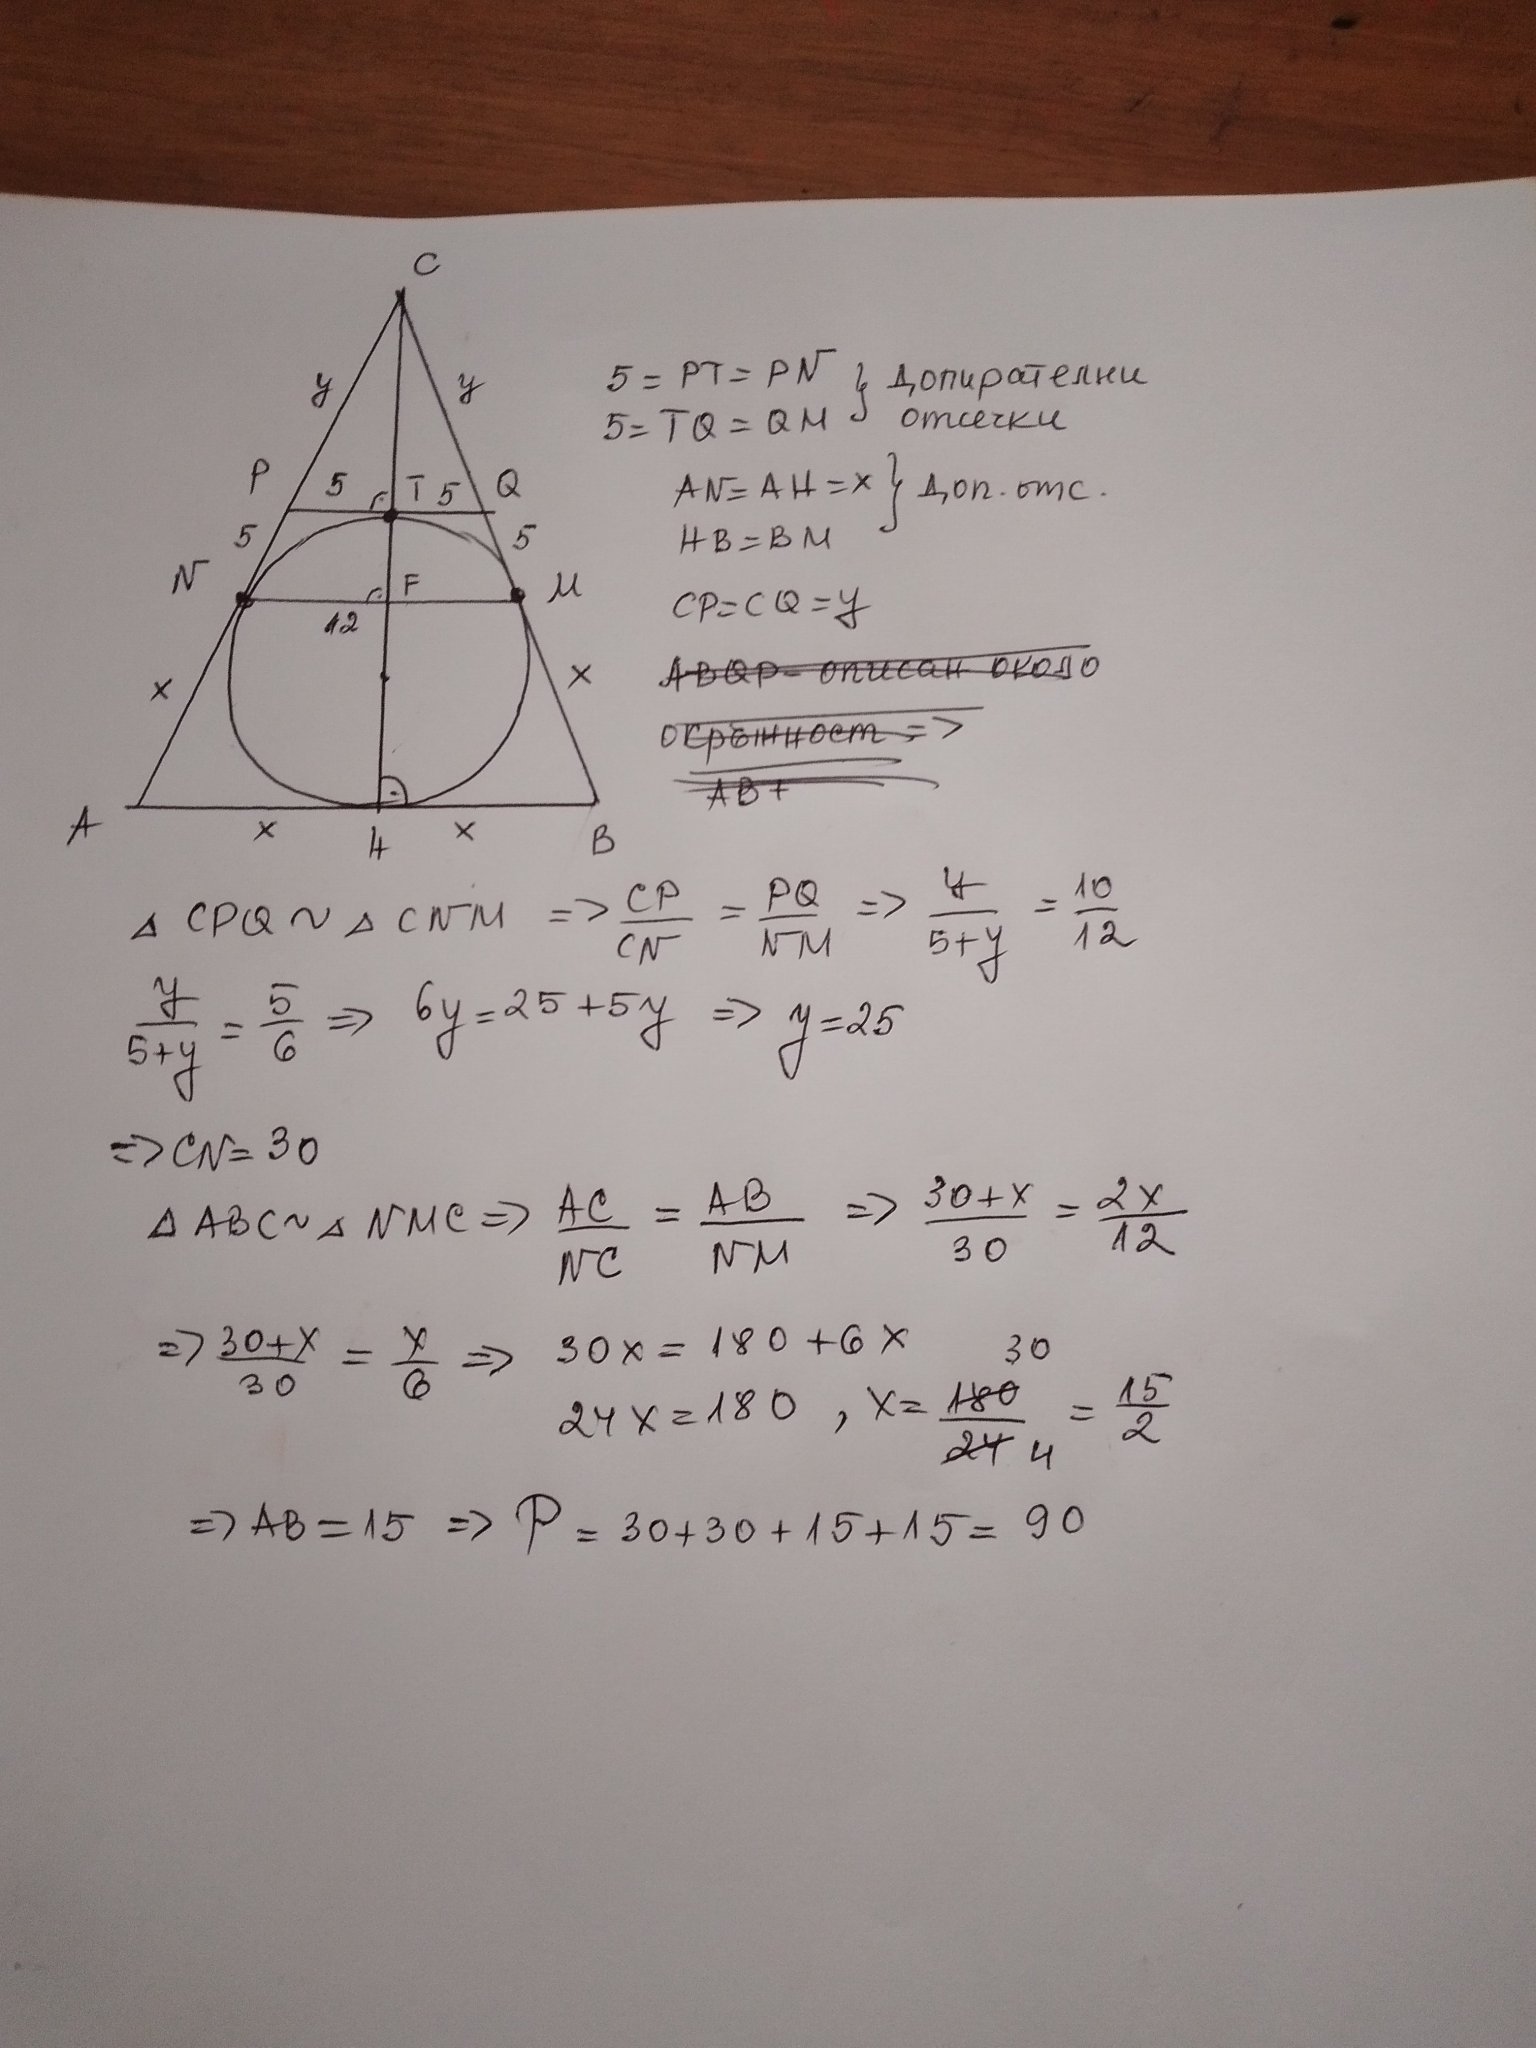 C
y y
P 5 T 5 Q
5 5
N F M
12
x x
A x H x B
5 = PT = PN } допирателни
5 = TQ = QM отсечки
AN = AH = x } доп. отс.
HB = BM
CP = CQ = y
ABQP - описан около
окръжност =>
AB +
△ CPQ ~ △ CNM => CP/CN = PQ/NM => y/5+y = 10/12
y/5+y = 5/6 => 6y = 25 + 5y => y = 25
=> CN = 30
△ ABC ~ △ NMC => AC/NC = AB/NM => 30+x/30 = 2x/12
=> 30+x/30 = x/6 => 30x = 180 + 6x
24x = 180 , x = 180/24 30/4 = 15/2
=> AB = 15 => P = 30 + 30 + 15 + 15 = 90